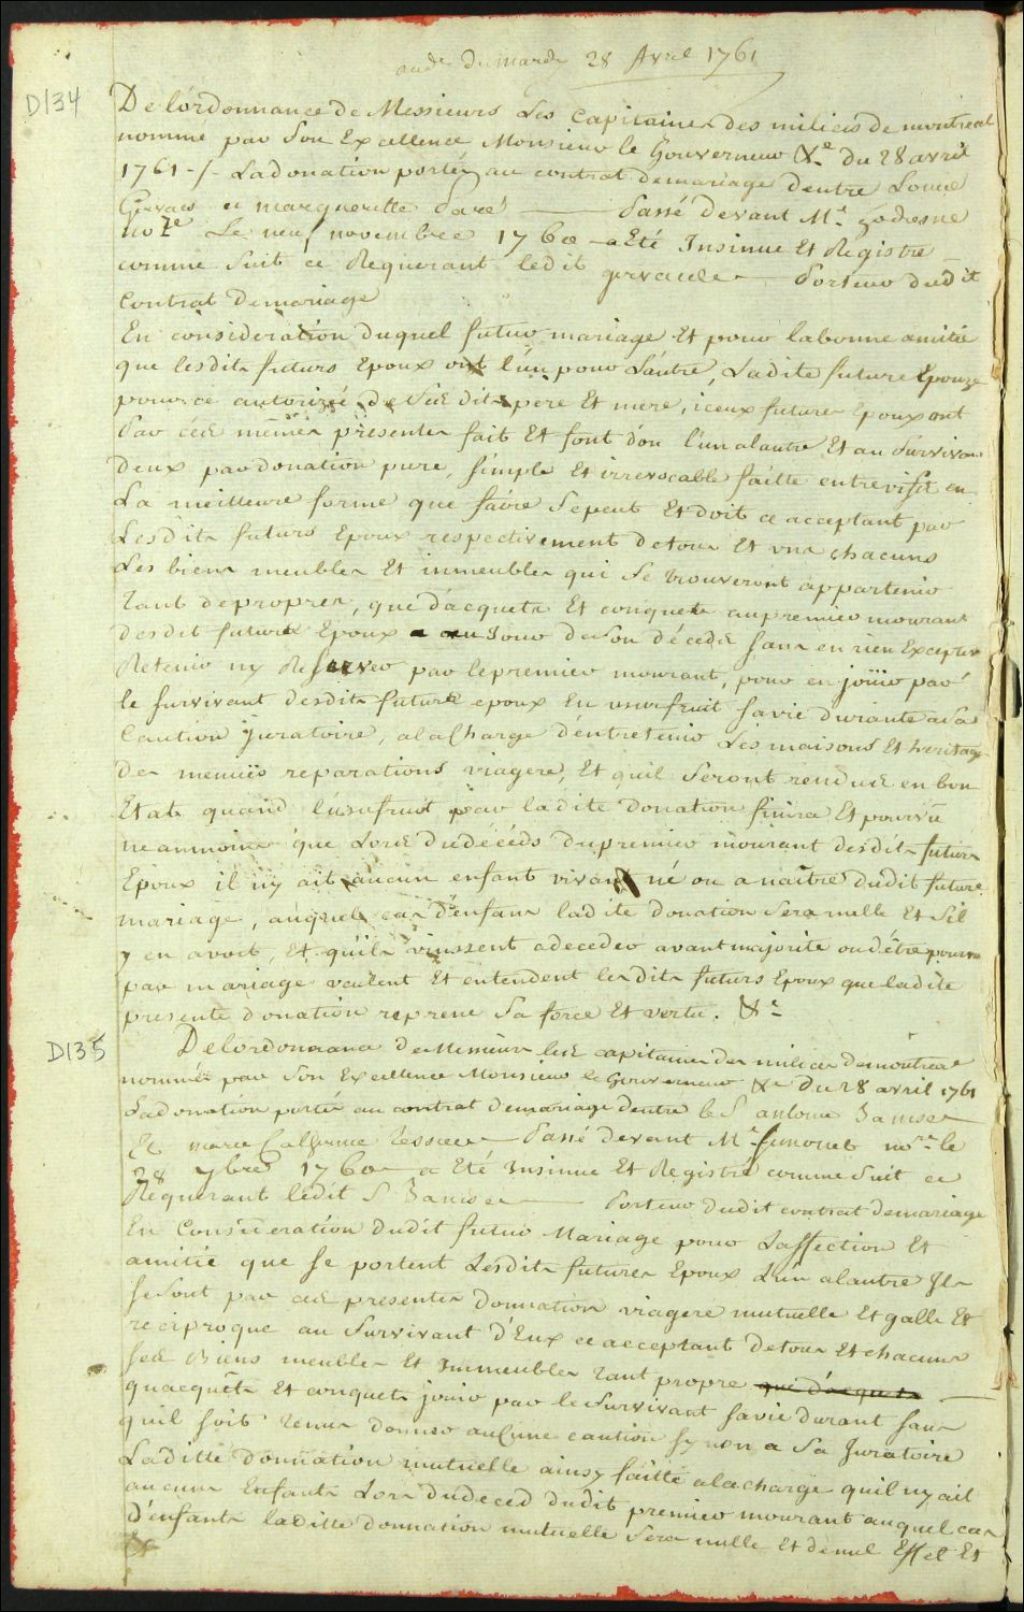 aud.e du mardy 28 Avril 1761
D134
De lórdonnance de Messieurs Les Capitaines des milices de montreal
nommé par Son Excellence Monsieur le Gouverneur &.e du 28 avril
1761 -/- La donation portéé au contrat de mariage d'entre Louis
Gervais et margueritte Paré —— Passé devant M.e hodesne
no.re Le neuf novembre 1760 - a Eté Insinué Et Registré
comme Suit ce Requerant ledit gervaise — Porteur dudit
Contrat de mariage
En consideration duquel futur mariage Et pour la bonne amitié
que lesdits futurs Epoux ont l'ún pour L'áutre, Ladite future Epouze
pour ce autorizéé de Ses dits pere Et mere, iceux futurs Epoux ont
Par ces mêmes présentes fait Et font don l'un a lautre Et au Survivant
deux par donation pure, simple Et irrevocable faitte entrevifs en
La meilleure forme que faire Se peut Et doit ce acceptant par
Lesdits futurs Epoux respectivement de tous Et uns chacuns
Les biens meubles Et immeubles qui Se trouveront appartenir
Tant de propres, que d'acquets Et conquets au premier mourant
desdits futurs Epoux au Jour de Son décéds sans en rien Excepter
Retenir ny Reserver par le premier mourant, pour en joüir par
le survivant desdits futurs epoux En usufruit sa vie durante a Sa
Caution Juratoire, a la Charge d'éntretenir Les maisons Et heritages
des menües reparations viagere, Et quil Seront rendus en bon
Etats quand l'usufruit par ladite Donation finira Et pourvû
neanmoins que Lors du décéds du premier mourant desdits futurs
Epoux il n'y ait aucun enfant vivant né ou a naître dudit futur
mariage, auquel cas d'enfans ladite donation Sera nulle Et Sil
y en avoit, Et qu'ils vinssent a deceder avant majorité ou d'être pourvu
par mariage veulent Et entendent lesdits futurs Epoux que ladite
presente donation reprene Sa force Et vertu. &.a
D135
De lordonnance de Messieurs les capitaines des milices de montreal
nommés par Son Excellence Monsieur le Gouverneur &.a Du 28 avril 1761
La donation portéé au contrat de mariage d'entre le S. antoine Janisse
Et marie Catherine Tessier — Passé devant M.e Simonet no.re le
28 9bre 1760 - a Eté Insinué Et Registré comme Suit ce
Requerant ledit S. Janisse —— Porteur dudit contrat de mariage
En Consideration dudit futur Mariage pour Laffection Et
amitié que se portent Lesdits futurs Epoux L'un a lautre Ils
se sont par ces presentes Donnation viagere mutuelle Et galle Et
reciproque au Survivant d'Eux ce acceptant de tous Et chacuns
ses Biens meubles Et Immeubles tant propre que d'acquets —
quacquêts Et conquets jouir par le Survivant sa vie durant sans
quil soit tenus donner aucune caution sy non a Sa Juratoire
Laditte donnation mutuelle ainsy faitte a la charge quil ny ait
aucuns Enfants Lors du deced dudit premier mourant auquel cas
d'enfants laditte donnation mutuelle Sera nulle Et de nul Effet Et